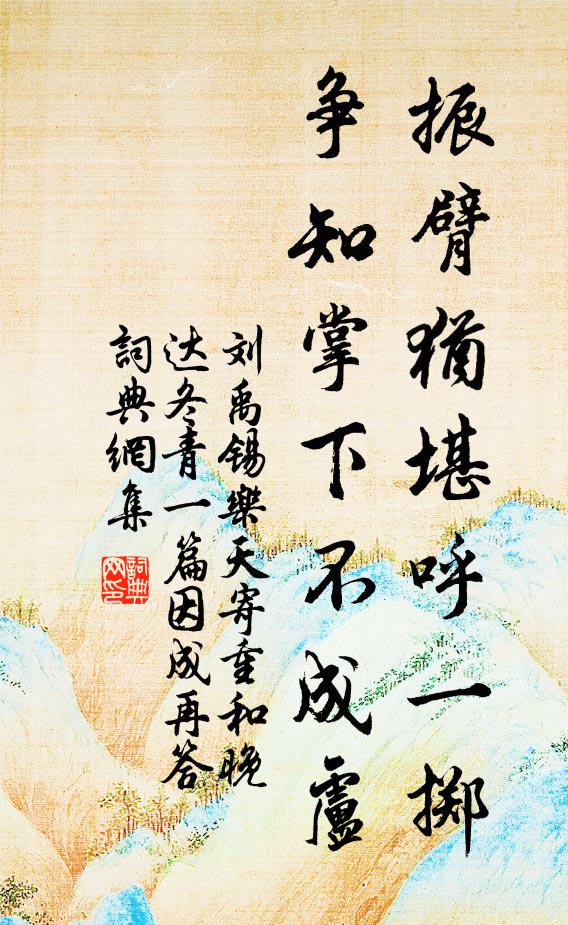 振臂猶堪呼一掷
争知掌下不成盧
刘禹锡樂天寄重和晚
达冬青一篇因成再答
詞典網集
詞典网印